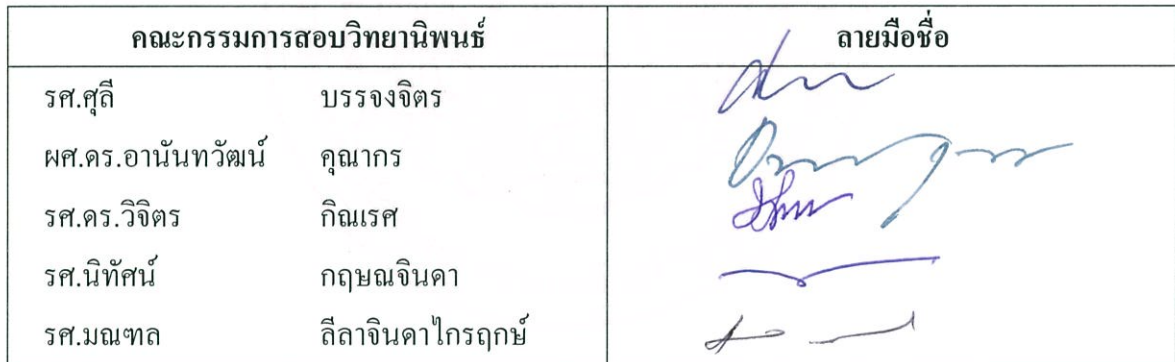 คณะกรรมการสอบวิทยานิพนธ์ ลายมือชื่อ
รศ.ศุลี บรรจงจิตร
ผศ.ดร.อานันทวัฒน์ คุณากร
รศ.ดร.วิจิตร กิณเรศ
รศ.นิทัศน์ กฤษณจินดา
รศ.มณฑล ลีลาจินดาไกรฤกษ์